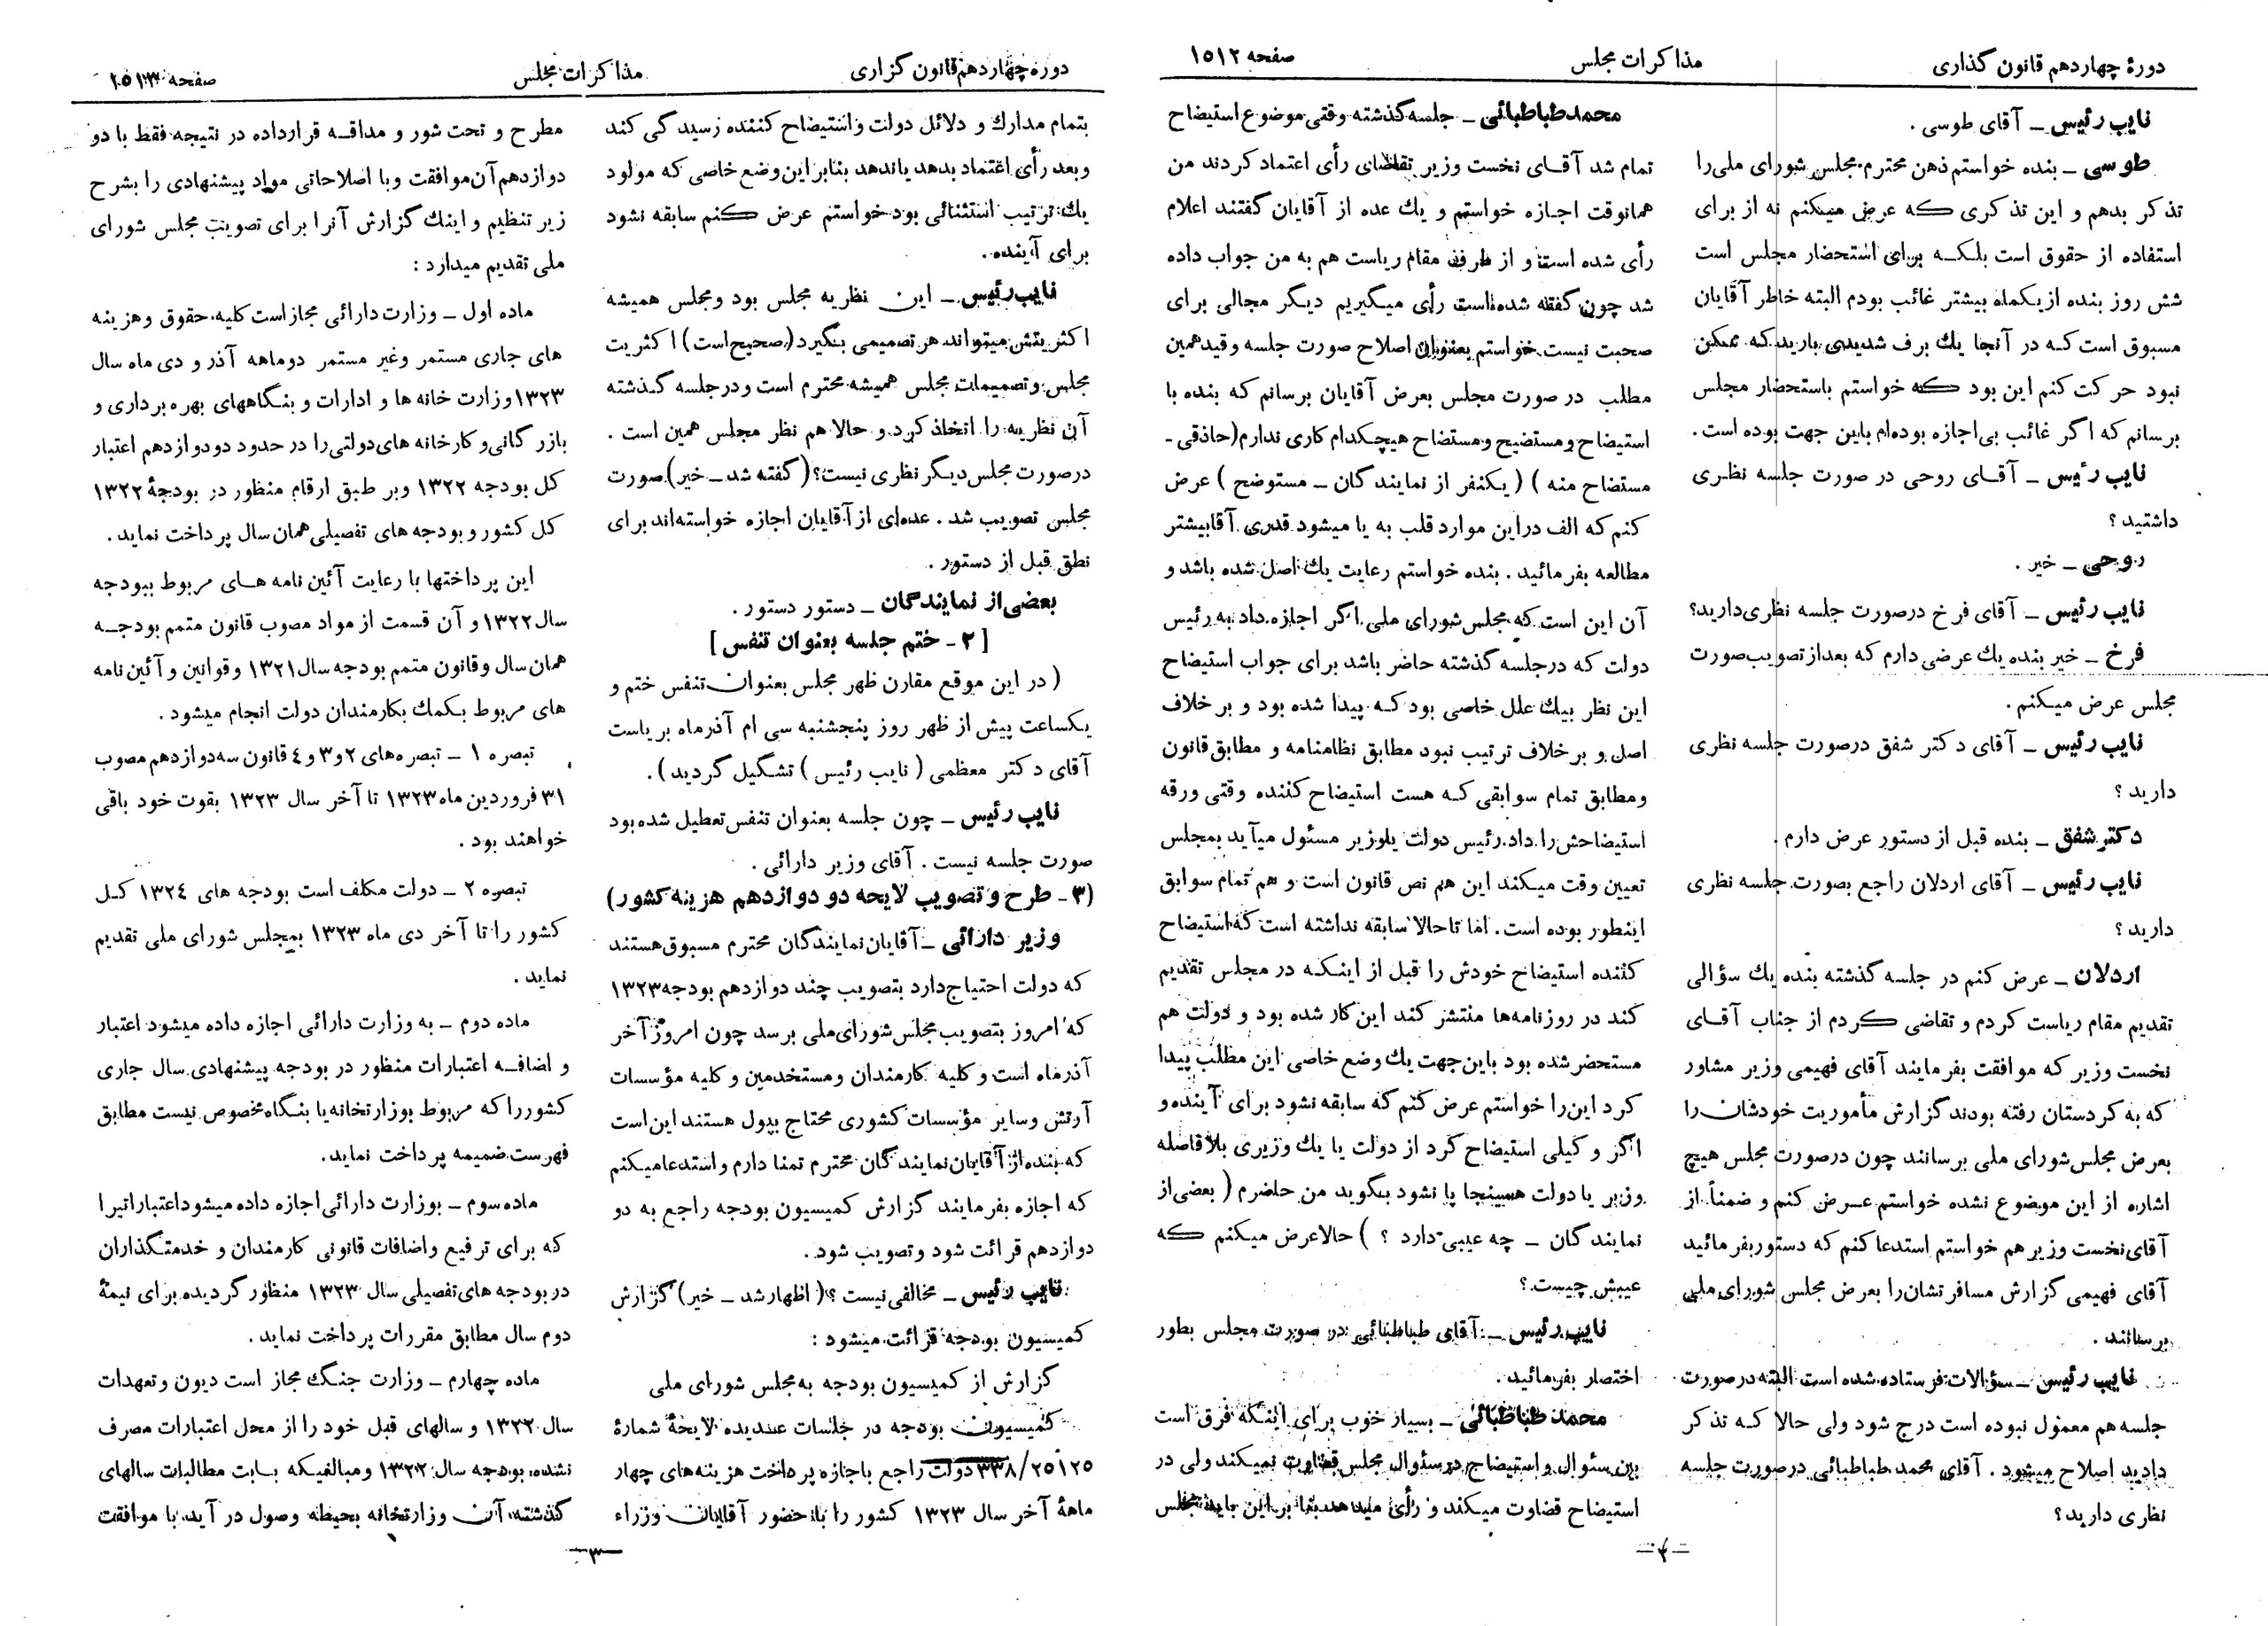 دورهٔ چهاردهم قانون گذاری
مذاکرات مجلس
صفحه ۱۵۱۲
نایب رئیس ـ آقای طوسی .
طوسی ـ بنده خواستم ذهن محترم مجلس شورای ملی را
تذکر بدهم و این تذکری که عرض میکنم نه از برای
استفاده از حقوق است بلکه برای استحضار مجلس است
شش روز بنده از یکماه بیشتر غائب بودم البته خاطر آقایان
مسبوق است که در آنجا یك برف شدیدی بارید که ممکن
نبود حرکت کنم این بود که خواستم باستحضار مجلس
برسانم که اگر غائب بی‌اجازه بوده‌ام باین جهت بوده است .
نایب رئیس ـ آقای روحی در صورت جلسه نظری
داشتید ؟
روحی ـ خیر .
نایب رئیس ـ آقای فرخ درصورت جلسه نظری دارید؟
فرخ ـ خیر بنده یك عرضی دارم که بعد از تصویب صورت
مجلس عرض میکنم .
نایب رئیس ـ آقای دکتر شفق درصورت جلسه نظری
دارید ؟
دکتر شفق ـ بنده قبل از دستور عرض دارم .
نایب رئیس ـ آقای اردلان راجع بصورت جلسه نظری
دارید ؟
اردلان ـ عرض کنم در جلسه گذشته بنده یك سؤالی
تقدیم مقام ریاست کردم و تقاضی کردم از جناب آقای
نخست وزیر که موافقت بفرمایند آقای فهیمی وزیر مشاور
که به کردستان رفته بودند گزارش مأموریت خودشان را
بعرض مجلس شورای ملی برسانند چون درصورت مجلس هیچ
اشاره از این موضوع نشده خواستم عرض کنم و ضمناً از
آقای نخست وزیر هم خواستم استدعا کنم که دستور بفرمائید
آقای فهیمی گزارش مسافرتشان را بعرض مجلس شورای ملی
برسانند .
نایب رئیس ـ سؤالات فرستاده شده است البته درصورت
جلسه هم معمول نبوده است درج شود ولی حالا که تذکر
دادید اصلاح میشود . آقای محمد طباطبائی درصورت جلسه
نظری دارید ؟
محمد طباطبائی ـ جلسه گذشته وقتی موضوع استیضاح
تمام شد آقای نخست وزیر تقاضای رأی اعتماد کردند من
همانوقت اجازه خواستم و یك عده از آقایان گفتند اعلام
رأی شده است و از طرف مقام ریاست هم به من جواب داده
شد چون گفته شده است رأی میگیریم دیگر مجالی برای
صحبت نیست خواستم بعنوان اصلاح صورت جلسه و قید همین
مطلب در صورت مجلس بعرض آقایان برسانم که بنده با
استیضاح و مستضیح و مستضاح هیچکدام کاری ندارم (حاذقی ـ
مستضاح منه ) ( یکنفر از نمایندگان ـ مستوضح ) عرض
کنم که الف در این موارد قلب به یا میشود قدری آقا بیشتر
مطالعه بفرمائید . بنده خواستم رعایت یك اصل شده باشد و
آن این است که مجلس شورای ملی اگر اجازه داد به رئیس
دولت که درجلسه گذشته حاضر باشد برای جواب استیضاح
این نظر بیك علل خاصی بود که پیدا شده بود و برخلاف
اصل و برخلاف ترتیب نبود مطابق نظامنامه و مطابق قانون
ومطابق تمام سوابقی که هست استیضاح کننده وقتی ورقه
استیضاحش را داد رئیس دولت یا وزیر مسئول میآید بمجلس
تعیین وقت میکند این هم نص قانون است و هم تمام سوابق
اینطور بوده است. اما تا حالا سابقه نداشته است که استیضاح
کننده استیضاح خودش را قبل از اینکه در مجلس تقدیم
کند در روزنامه‌ها منتشر کند این کار شده بود و دولت هم
مستحضر شده بود باین جهت یك وضع خاصی این مطلب پیدا
کرد این را خواستم عرض کنم که سابقه نشود برای آینده و
اگر وکیلی استیضاح کرد از دولت یا یك وزیری بلافاصله
وزیر یا دولت همینجا پا نشود بگوید من حاضرم ( بعضی از
نمایندگان ـ چه عیبی دارد ؟ ) حالا عرض میکنم که
عیبش چیست؟
نایب رئیس ـ آقای طباطبائی در صورت مجلس بطور
اختصار بفرمائید .
محمد طباطبائی ـ بسیار خوب برای اینکه فرق است
بین سئوال و استیضاح در سئوال مجلس قضاوت نمیکند ولی در
استیضاح قضاوت میکند و رأی میدهد بنا براین باید مجلس
ـ۲ـ
دوره چهاردهم قانون گزاری
مذاکرات مجلس
صفحه ۱۵۱۳
بتمام مدارك و دلائل دولت و استیضاح کننده رسیدگی کند
وبعد رأی اعتماد بدهد یا ندهد بنابر این وضع خاصی که مولود
یك ترتیب استثنائی بود خواستم عرض کنم سابقه نشود
برای آینده .
نایب رئیس ـ این نظریه مجلس بود و مجلس همیشه
اکثریتش میتواند هر تصمیمی بگیرد (صحیح است) اکثریت
مجلس و تصمیمات مجلس همیشه محترم است و درجلسه گذشته
آن نظریه را اتخاذ کرد و حالا هم نظر مجلس همین است .
درصورت مجلس دیگر نظری نیست؟ ( گفته شد ـ خیر) صورت
مجلس تصویب شد . عده‌ای از آقایان اجازه خواسته‌اند برای
نطق قبل از دستور .
بعضی از نمایندگان ـ دستور دستور .
[ ۲ ـ ختم جلسه بعنوان تنفس ]
( در این موقع مقارن ظهر مجلس بعنوان تنفس ختم و
یکساعت پیش از ظهر روز پنجشنبه سی ام آذرماه بریاست
آقای دکتر معظمی ( نایب رئیس ) تشکیل گردید ) .
نایب رئیس ـ چون جلسه بعنوان تنفس تعطیل شده بود
صورت جلسه نیست . آقای وزیر دارائی .
(۳ ـ طرح و تصویب لایحه دو دوازدهم هزینه کشور)
وزیر دارائی ـ آقایان نمایندگان محترم مسبوق هستند
که دولت احتیاج دارد بتصویب چند دوازدهم بودجه ۱۳۲۳
که امروز بتصویب مجلس شورای ملی برسد چون امروز آخر
آذرماه است و کلیه کارمندان و مستخدمین و کلیه مؤسسات
آرتش و سایر مؤسسات کشوری محتاج بپول هستند این است
که بنده از آقایان نمایندگان محترم تمنا دارم و استدعا میکنم
که اجازه بفرمایند گزارش کمیسیون بودجه راجع به دو
دوازدهم قرائت شود و تصویب شود .
نایب رئیس ـ مخالفی نیست ؟ ( اظهار شد ـ خیر) گزارش
کمیسیون بودجه قرائت میشود :
گزارش از کمیسیون بودجه به مجلس شورای ملی
کمیسیون بودجه در جلسات عدیده لایحهٔ شمارهٔ
۳۳۸/۲۵۱۲۵ دولت راجع باجازه پرداخت هزینه‌های چهار
ماههٔ آخر سال ۱۳۲۳ کشور را با حضور آقایان وزراء
مطرح و تحت شور و مداقه قرارداده در نتیجه فقط با دو
دوازدهم آن موافقت و با اصلاحاتی مواد پیشنهادی را بشرح
زیر تنظیم و اینك گزارش آنرا برای تصویب مجلس شورای
ملی تقدیم میدارد :
ماده اول ـ وزارت دارائی مجاز است کلیه حقوق و هزینه
های جاری مستمر و غیر مستمر دوماهه آذر و دی ماه سال
۱۳۲۳ وزارت خانه ها و ادارات و بنگاههای بهره برداری و
بازرگانی و کارخانه های دولتی را در حدود دو دوازدهم اعتبار
کل بودجه ۱۳۲۲ و بر طبق ارقام منظور در بودجهٔ ۱۳۲۲
کل کشور و بودجه های تفصیلی همان سال پرداخت نماید .
این پرداختها با رعایت آئین نامه های مربوط ببودجه
سال ۱۳۲۲ و آن قسمت از مواد مصوب قانون متمم بودجه
همان سال و قانون متمم بودجه سال ۱۳۲۱ و قوانین و آئین نامه
های مربوط بکمك بکارمندان دولت انجام میشود .
تبصره ۱ ـ تبصره‌های ۲ و۳ و٤ قانون سه دوازدهم مصوب
۳۱ فروردین ماه ۱۳۲۳ تا آخر سال ۱۳۲۳ بقوت خود باقی
خواهند بود .
تبصره ۲ ـ دولت مکلف است بودجه های ۱۳۲٤ کل
کشور را تا آخر دی ماه ۱۳۲۳ بمجلس شورای ملی تقدیم
نماید .
ماده دوم ـ به وزارت دارائی اجازه داده میشود اعتبار
و اضافه اعتبارات منظور در بودجه پیشنهادی سال جاری
کشور را که مربوط بوزارتخانه یا بنگاه مخصوص نیست مطابق
فهرست ضمیمه پرداخت نماید .
ماده سوم ـ بوزارت دارائی اجازه داده میشود اعتباراتیرا
که برای ترفیع و اضافات قانونی کارمندان و خدمتگذاران
در بودجه های تفصیلی سال ۱۳۲۳ منظور گردیده برای نیمهٔ
دوم سال مطابق مقررات پرداخت نماید .
ماده چهارم ـ وزارت جنگ مجاز است دیون و تعهدات
سال ۱۳۲۲ و سالهای قبل خود را از محل اعتبارات مصرف
نشده بودجه سال ۱۳۲۲ و مبالغیکه بابت مطالبات سالهای
گذشته آن وزارتخانه بحیطه وصول در آید با موافقت
ـ۳ـ